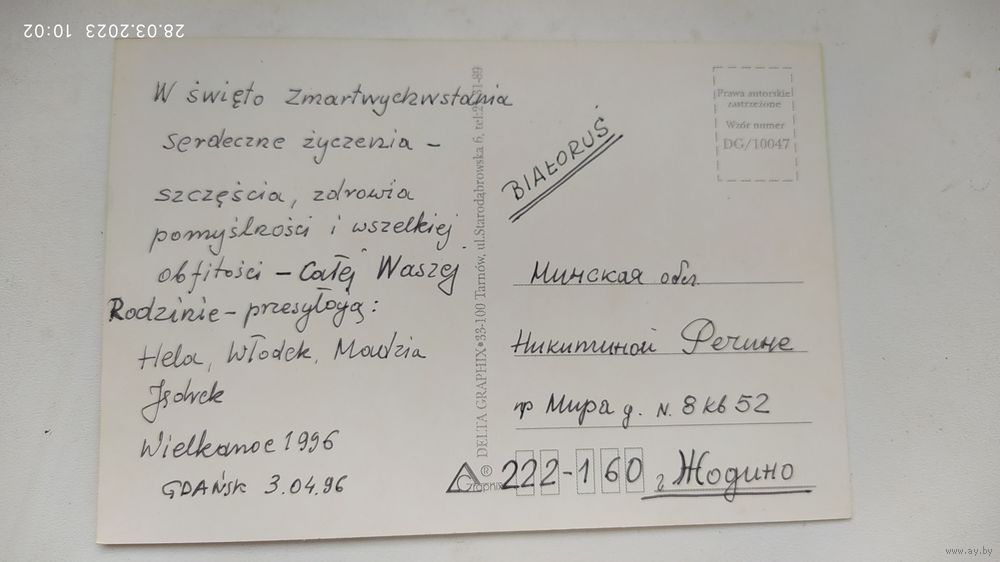 28.03.2023 10:02
W święto Zmartwychwstania
serdeczne życzenia –
szczęścia, zdrowia
pomyślności i wszelkiej
obfitości – Całej Waszej
Rodzinie – przesyłają:
Hela, Włodek, Madzia
Jacek
Wielkanoc 1996
GDAŃSK 3.04.96
DELTA GRAPHIX•33-100 Tarnów, ul.Starodąbrowska 6, tel:
Graphix
BIAŁORUŚ
Prawa autorskie
zastrzeżone
Wzór numer
DG/10047
Минская обл.
Никитиной Регине
пр Мира д. N. 8 кв 52
222-160 г Жодино
www.ay.by